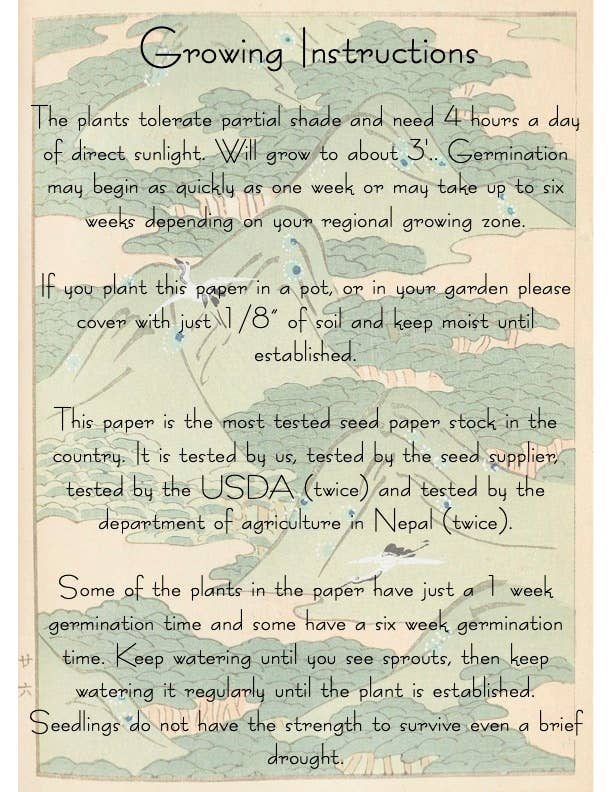 Growing Instructions
The plants tolerate partial shade and need 4 hours a day
of direct sunlight. Will grow to about 3'.. Germination
may begin as quickly as one week or may take up to six
weeks depending on your regional growing zone.
If you plant this paper in a pot, or in your garden please
cover with just 1/8" of soil and keep moist until
established.
This paper is the most tested seed paper stock in the
country. It is tested by us, tested by the seed supplier,
tested by the USDA (twice) and tested by the
department of agriculture in Nepal (twice).
Some of the plants in the paper have just a 1 week
germination time and some have a six week germination
time. Keep watering until you see sprouts, then keep
watering it regularly until the plant is established.
Seedlings do not have the strength to survive even a brief
drought.
廿六